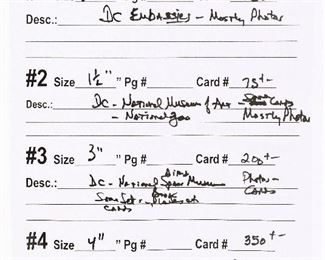 Desc.: DC Embassies - Mostly Photos
#2 Size 1½" " Pg # Card # 75+-
Desc.: DC - National Museum of Art - Some Cards
- National Zoo Mostly Photos
#3 Size 3" " Pg # Card # 200+-
Desc.: DC - National Air & Space Museum Photo-
Some Set - Book Cards
Cards
#4 Size 4" " Pg # Card # 350+-